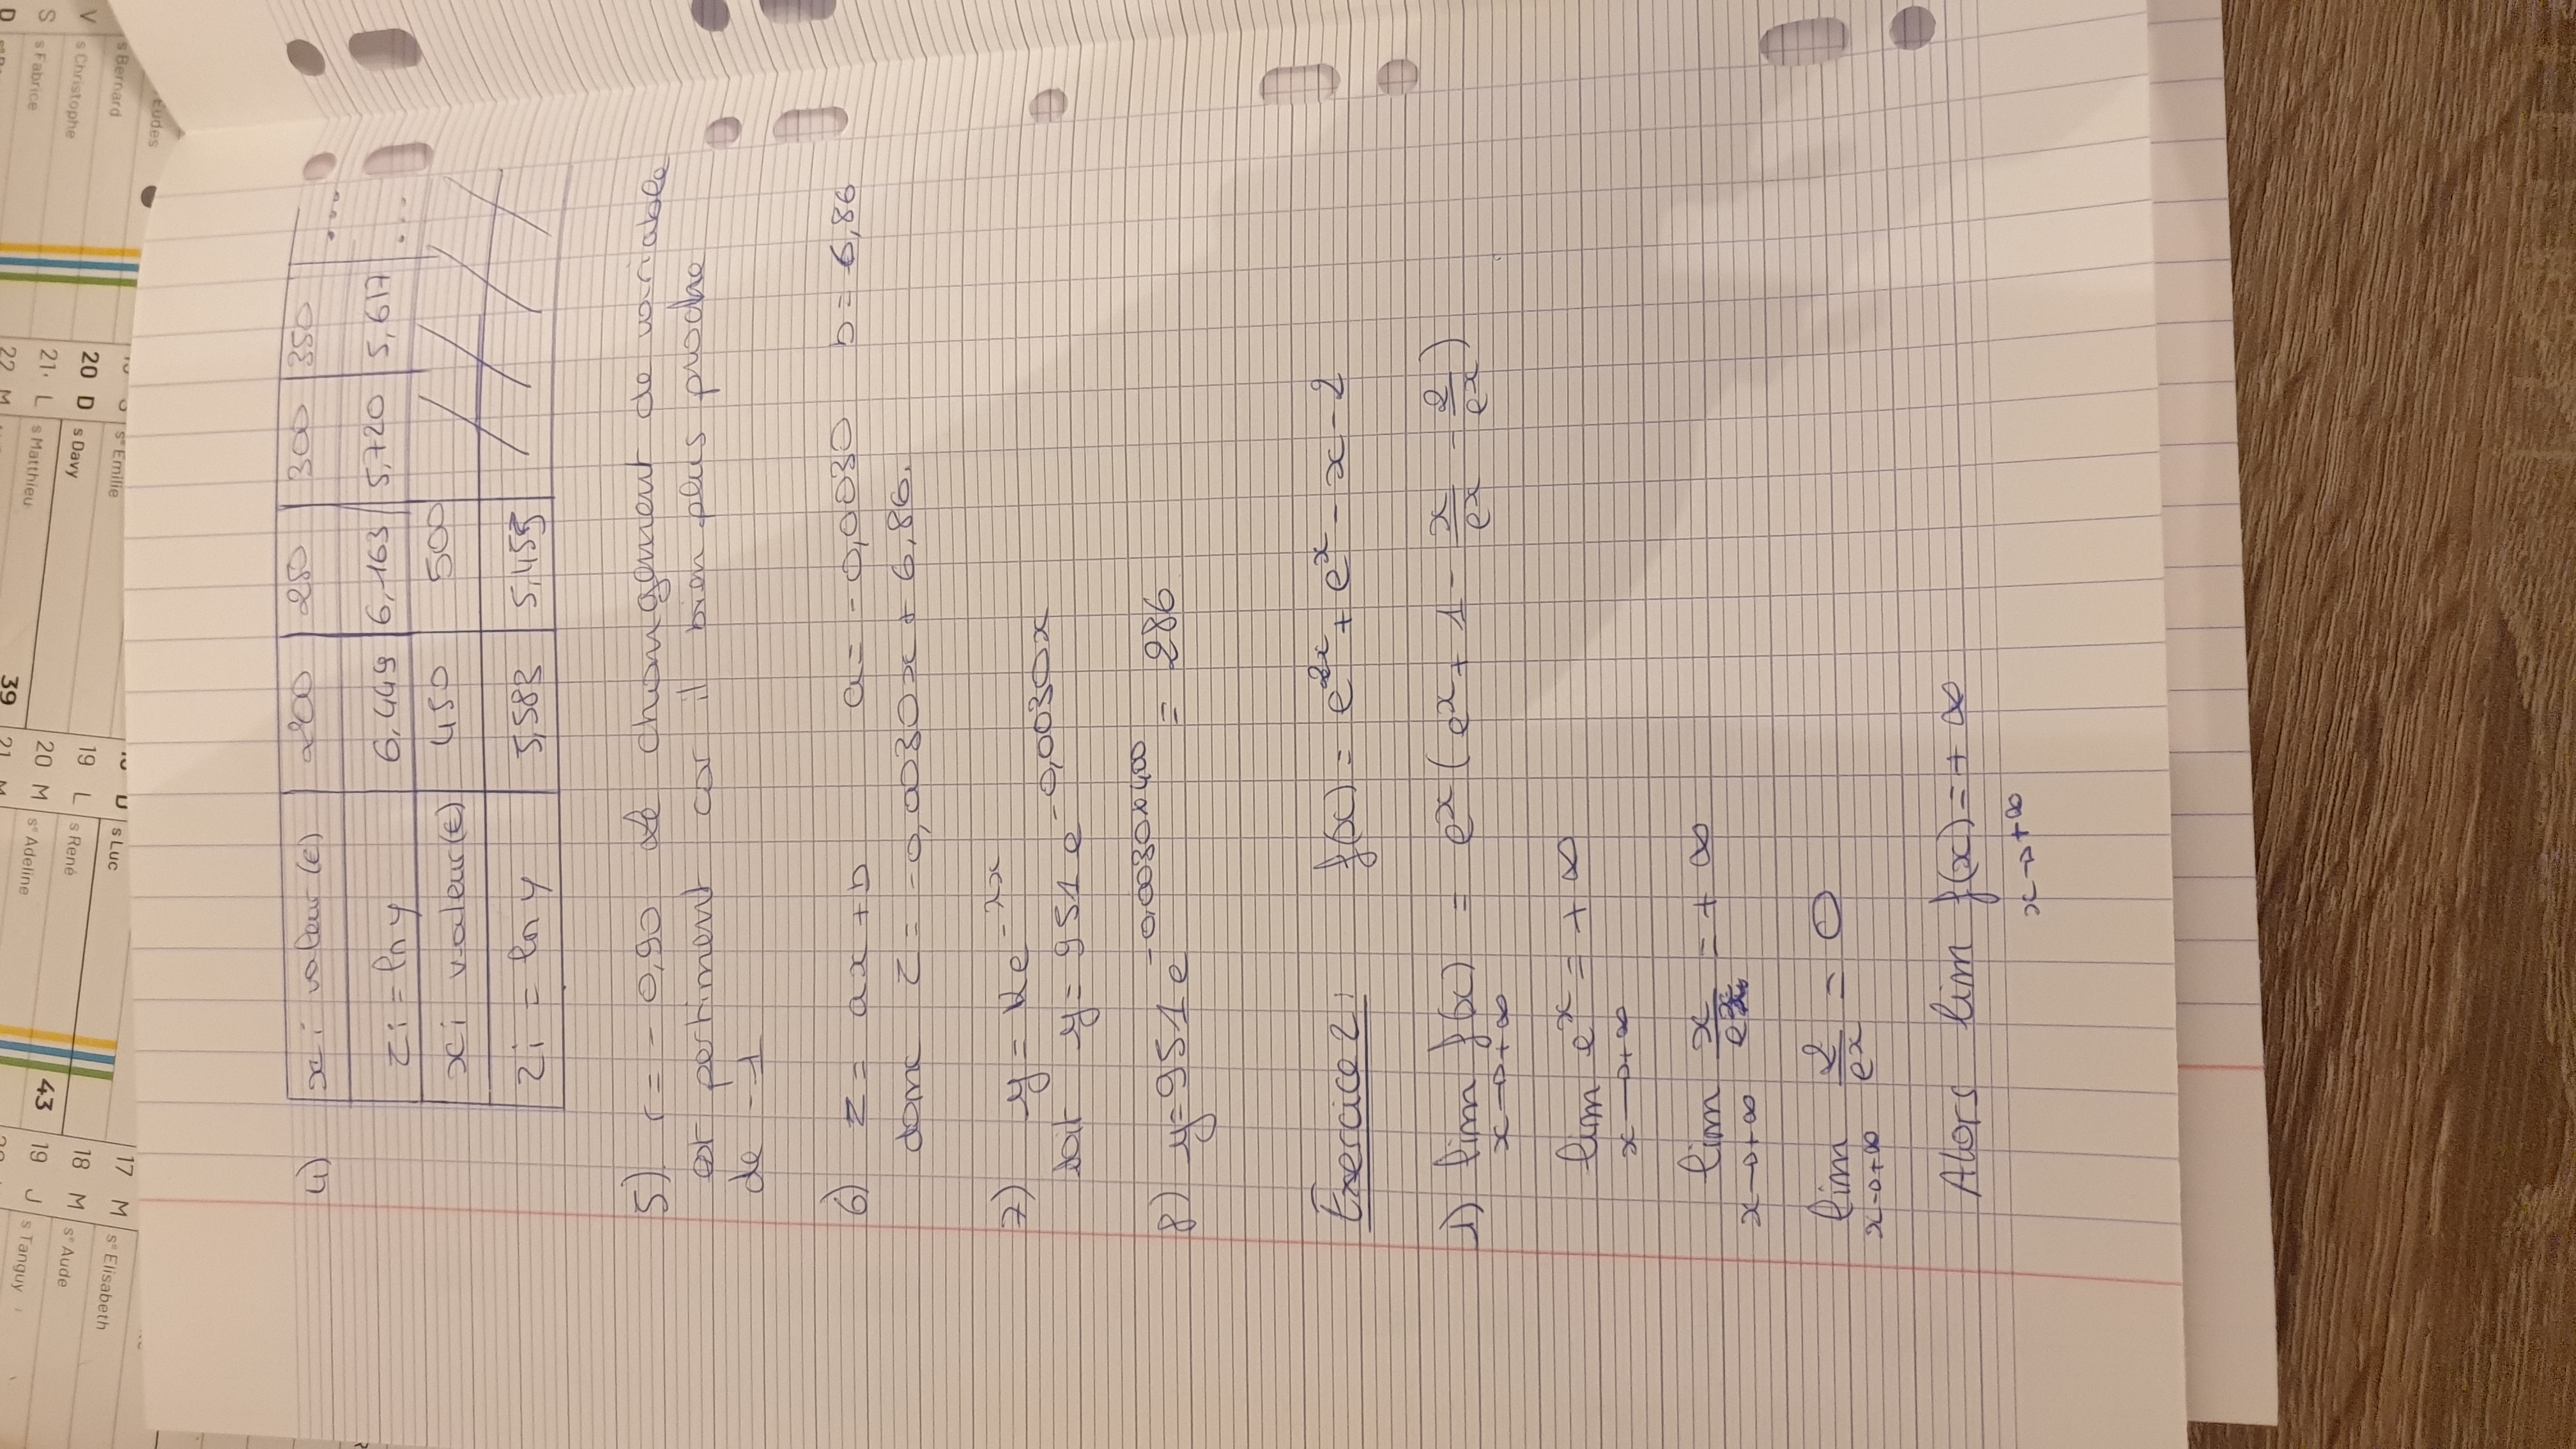 17 M sᵗᵉ Elisabeth
18 M sᵗᵉ Aude
19 J s Tanguy
43
s Luc
19 L s René
20 M sᵗᵉ Adeline
21
39
sᵗᵉ Emilie
20 D s Davy
21 L s Matthieu
22 M
Eudes
s Bernard
V s Christophe
S s Fabrice
D
4) xi valeur (€) 200 250 300 350 ...
zi = ln y 6,449 6,163 5,720 5,617 ...
xi valeur (€) 450 500
zi = ln y 5,583 5,455
5) r = - 0,90 le changement de variable
est pertiment car il bien plus proche
de -1
6) z = ax + b a = -0,0030 b = 6,86
donc z = -0,0030x + 6,86.
7) y = Ke^-λx
soit y = 951 e^-0,0030x
8) y = 951 e^-0,0030x400 = 286
Exercice 2 : f(x) = e^2x + e^x - x - 2
1) lim f(x) = e^x (e^x + 1 - x/e^x - 2/e^x)
x→+∞
lim e^x = + ∞
x→+∞
lim x/e^x = + ∞
x→+∞
lim 2/e^x = 0
x→+∞
Alors lim f(x) = + ∞
x→+∞